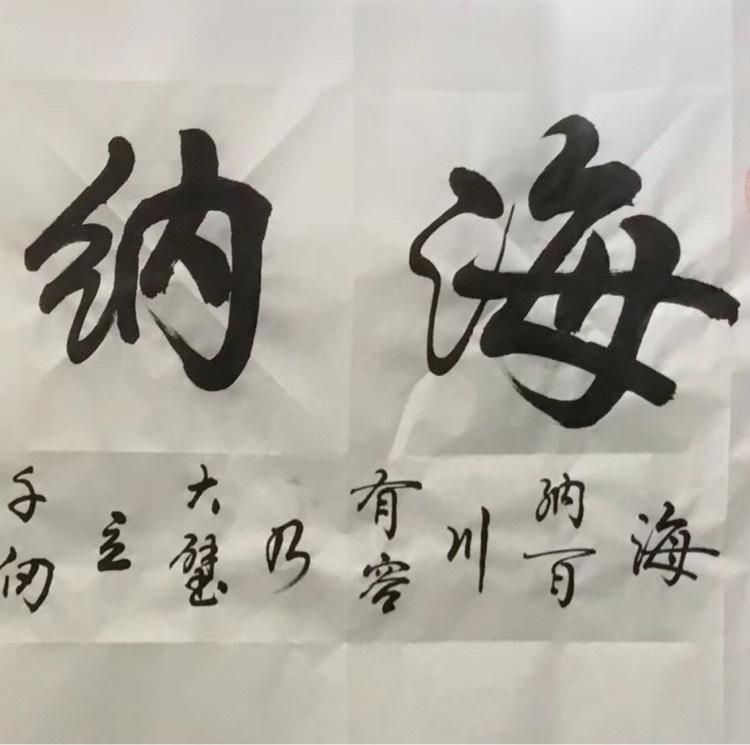 海纳
海
纳百
川
有容
乃
大壁
立
千仞